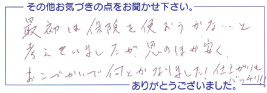 その他お気づきの点をお聞かせ下さい。
最初は保険を使おうかな…と
考えていましたが、思のほか安く、
おこづかいで何とかなりました!仕上がりも
バッチリ!
ありがとうございました。